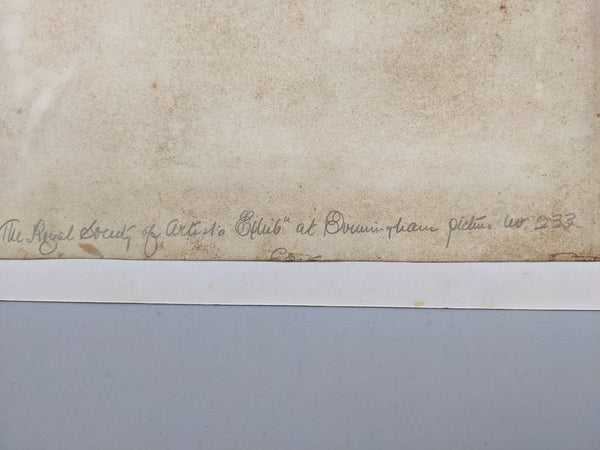 The Royal Society of Artists Exhib" at Birmingham picture no. 233